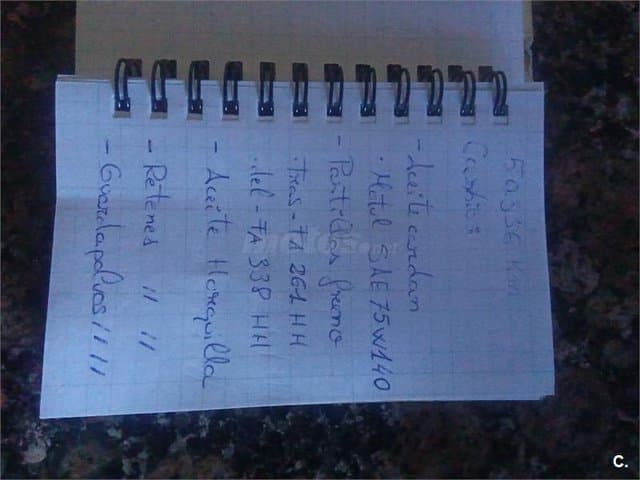 50,336 Km
Cambié:
- Aceite cardan
· Motul SAE 75W140
- Pastillas freno
· Tras - FA 261 HH
· del - FA 338 HH
- Aceite Horquilla
- Retenes // //
- Guardapolvos // //
C.